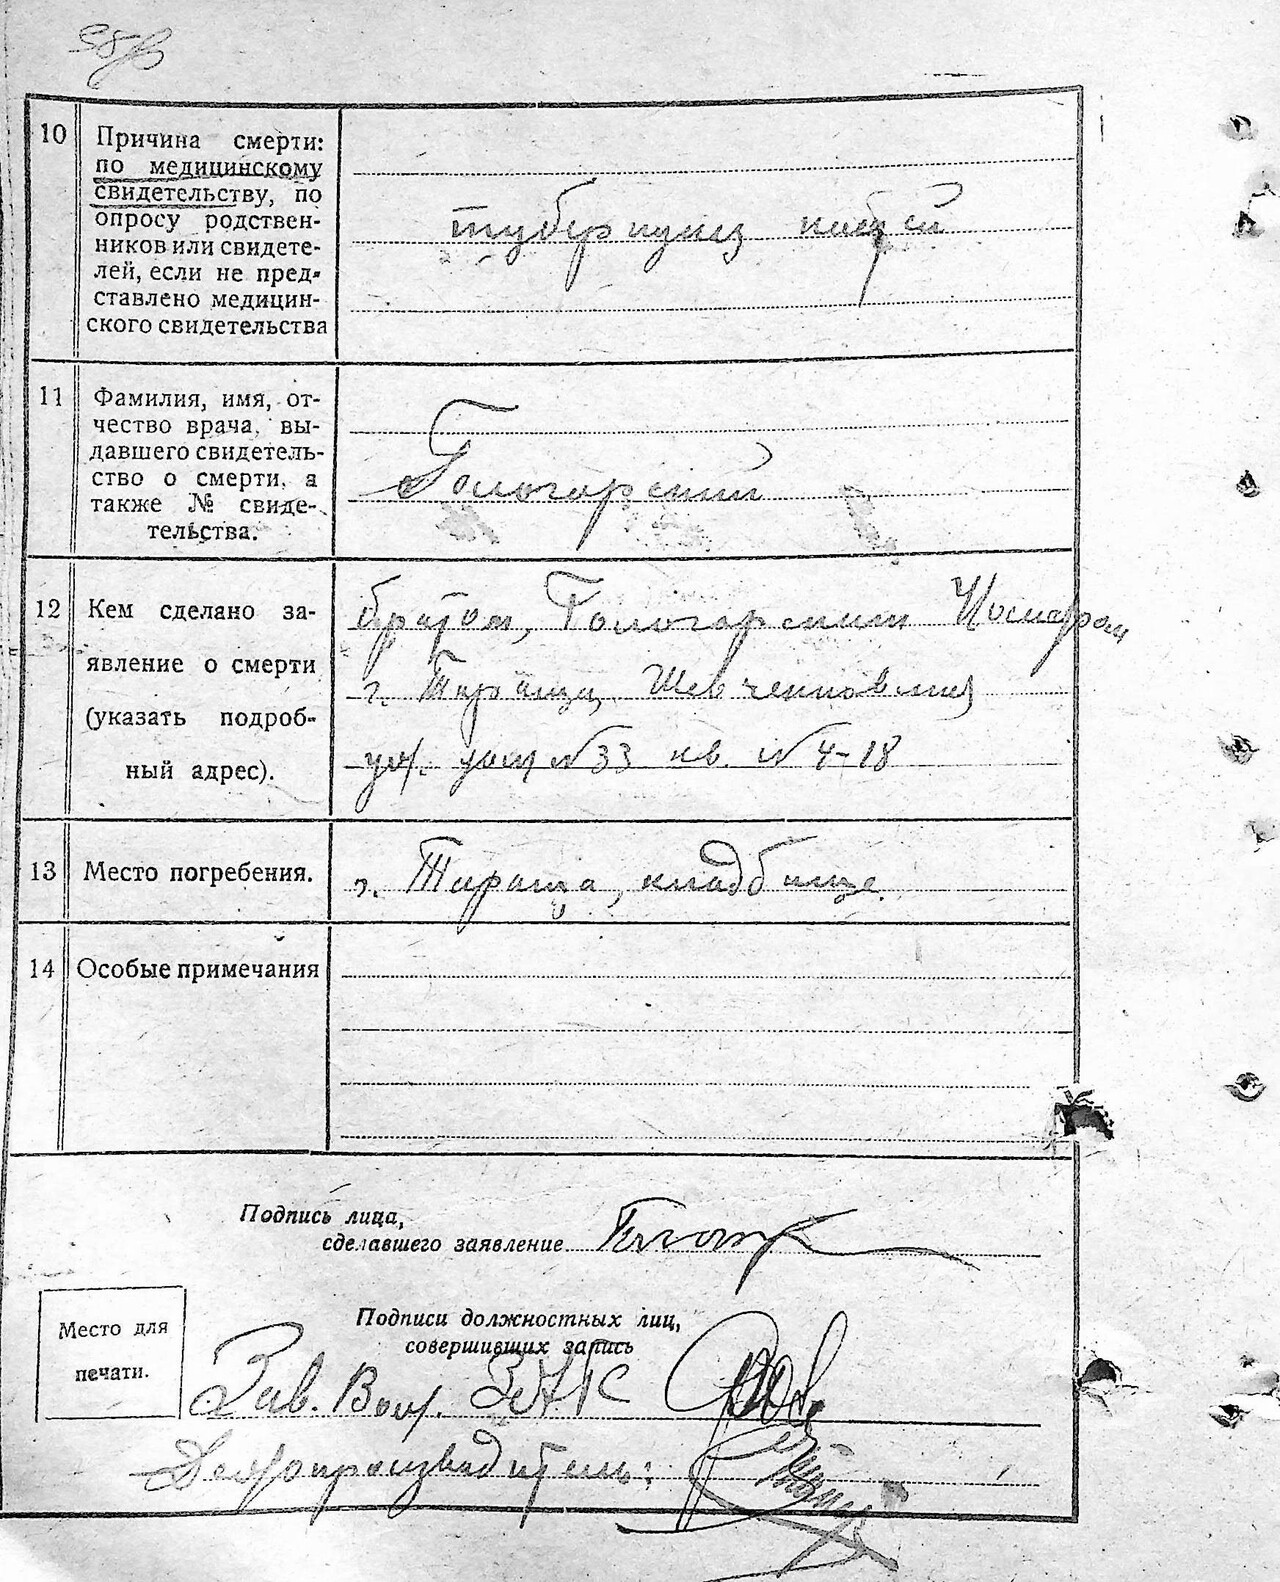 10 Причина смерти:
по медицинскому
свидетельству, по
опросу родствен-
ников или свидете-
лей, если не пред-
ставлено медицин-
ского свидетельства
туберкулез костей
11 Фамилия, имя, от-
чество врача, вы-
давшего свидетель-
ство о смерти, а
также № свиде-
тельства.
Гологорский
12 Кем сделано за-
явление о смерти
(указать подроб-
ный адрес).
братом, Гологорским Иосифом
г. Тираща, Шевченковская
ул. дом №33 кв. №4-18
13 Место погребения.
г. Тираща, кладбище.
14 Особые примечания
Подпись лица,
сделавшего заявление
Подписи должностных лиц,
совершивших запись
Место для
печати.
Зав. ЗАГС
Делопроизводитель: